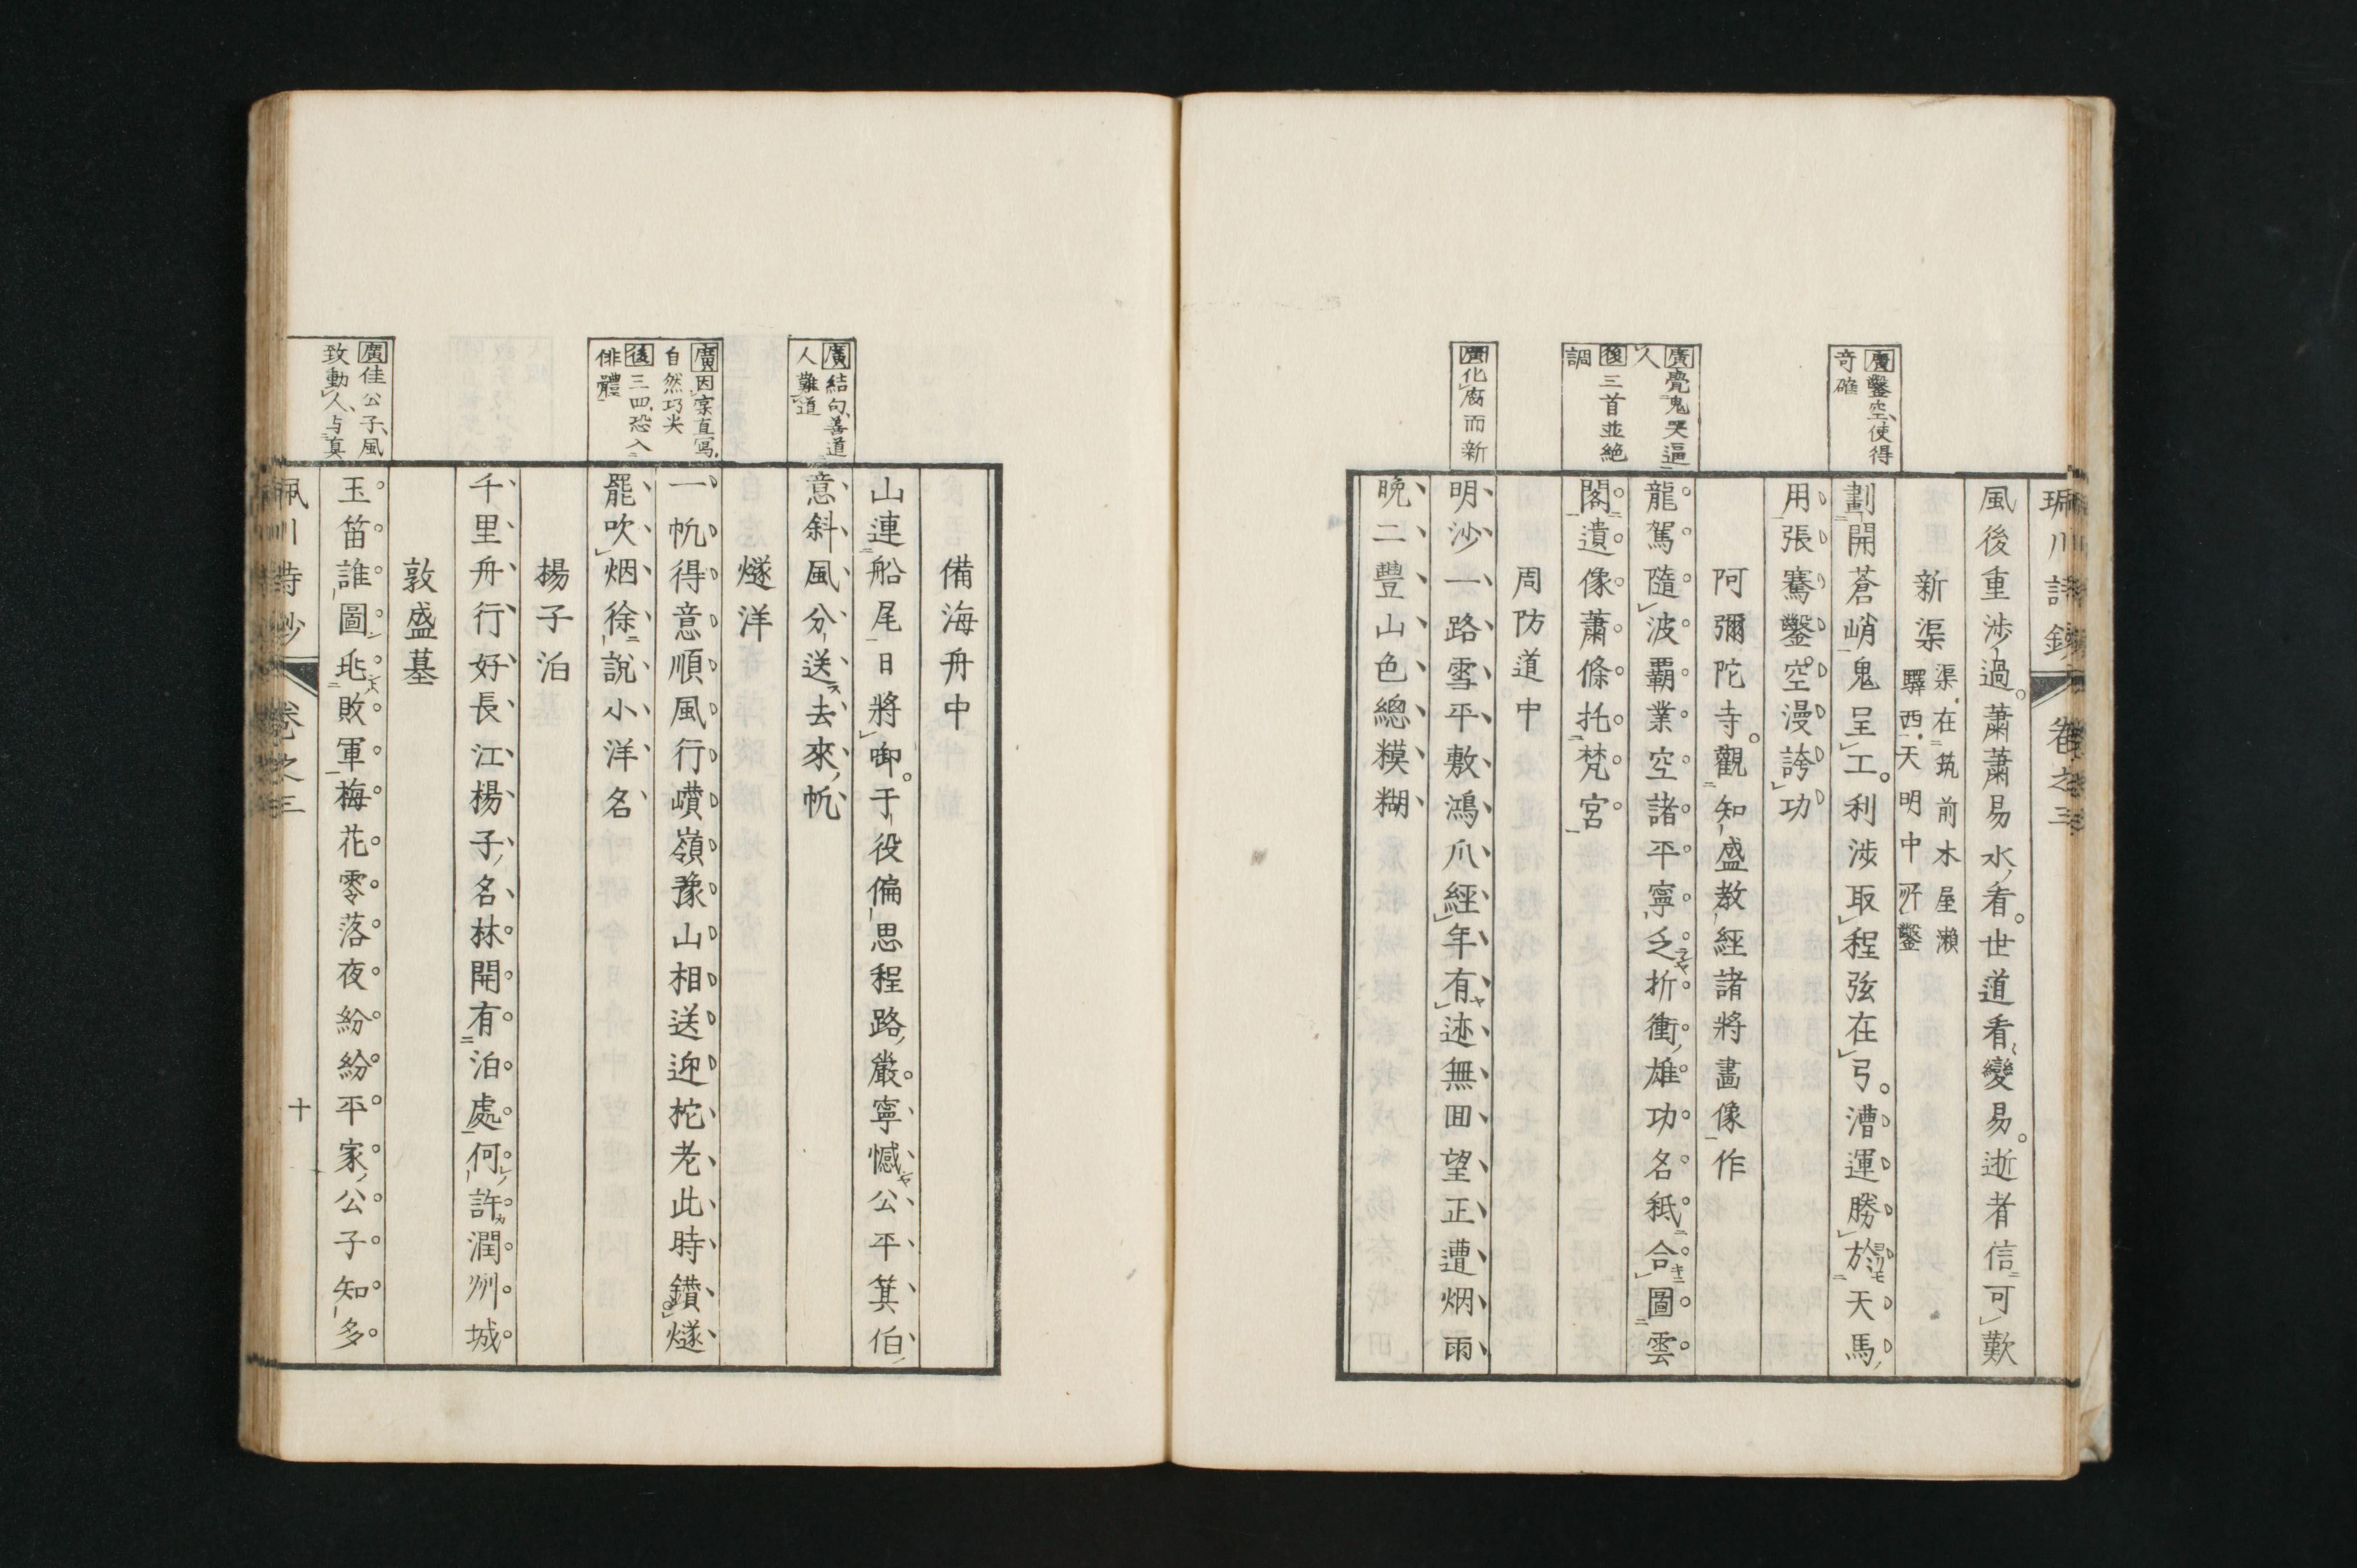 風後重渉過蕭蕭易水看世道看變易逝者信可歎
新渠 渠在筑前木屋瀬
驛西天明中所鑿
廣鑿空使得
奇確
劃開蒼峭鬼呈工利渉取程弦在弓漕運勝於天馬
用張騫鑿空漫誇功
阿彌陀寺觀知盛教經諸將畵像作
廣覺鬼哭逼
人
後三首並絶
調
龍駕隨波覇業空諸平寧乏折衝雄功名秪合圖雲
閣遺像蕭條托梵宮
周防道中
廣化腐而新
明沙一路雪平敷鴻爪經年有迹無囬望正遭烟雨
晩二豐山色總糢糊
備海舟中
山連船尾日將啣于役偏思程路嚴寧憾公平箕伯
廣結句善道
人難道
意斜風分送去來帆
燧洋
廣因寔直写
自然巧尖
後三四恐入
俳體
一帆得意順風行巑嶺豫山相送迎柁老此時鑚燧
罷吹烟徐說小洋名
揚子泊
千里舟行好長江楊子名林開有泊處何許潤州城
敦盛墓
廣佳公子風
致動人与真
玉笛誰圖兆敗軍梅花零落夜紛紛平家公子知多
卷之三
十